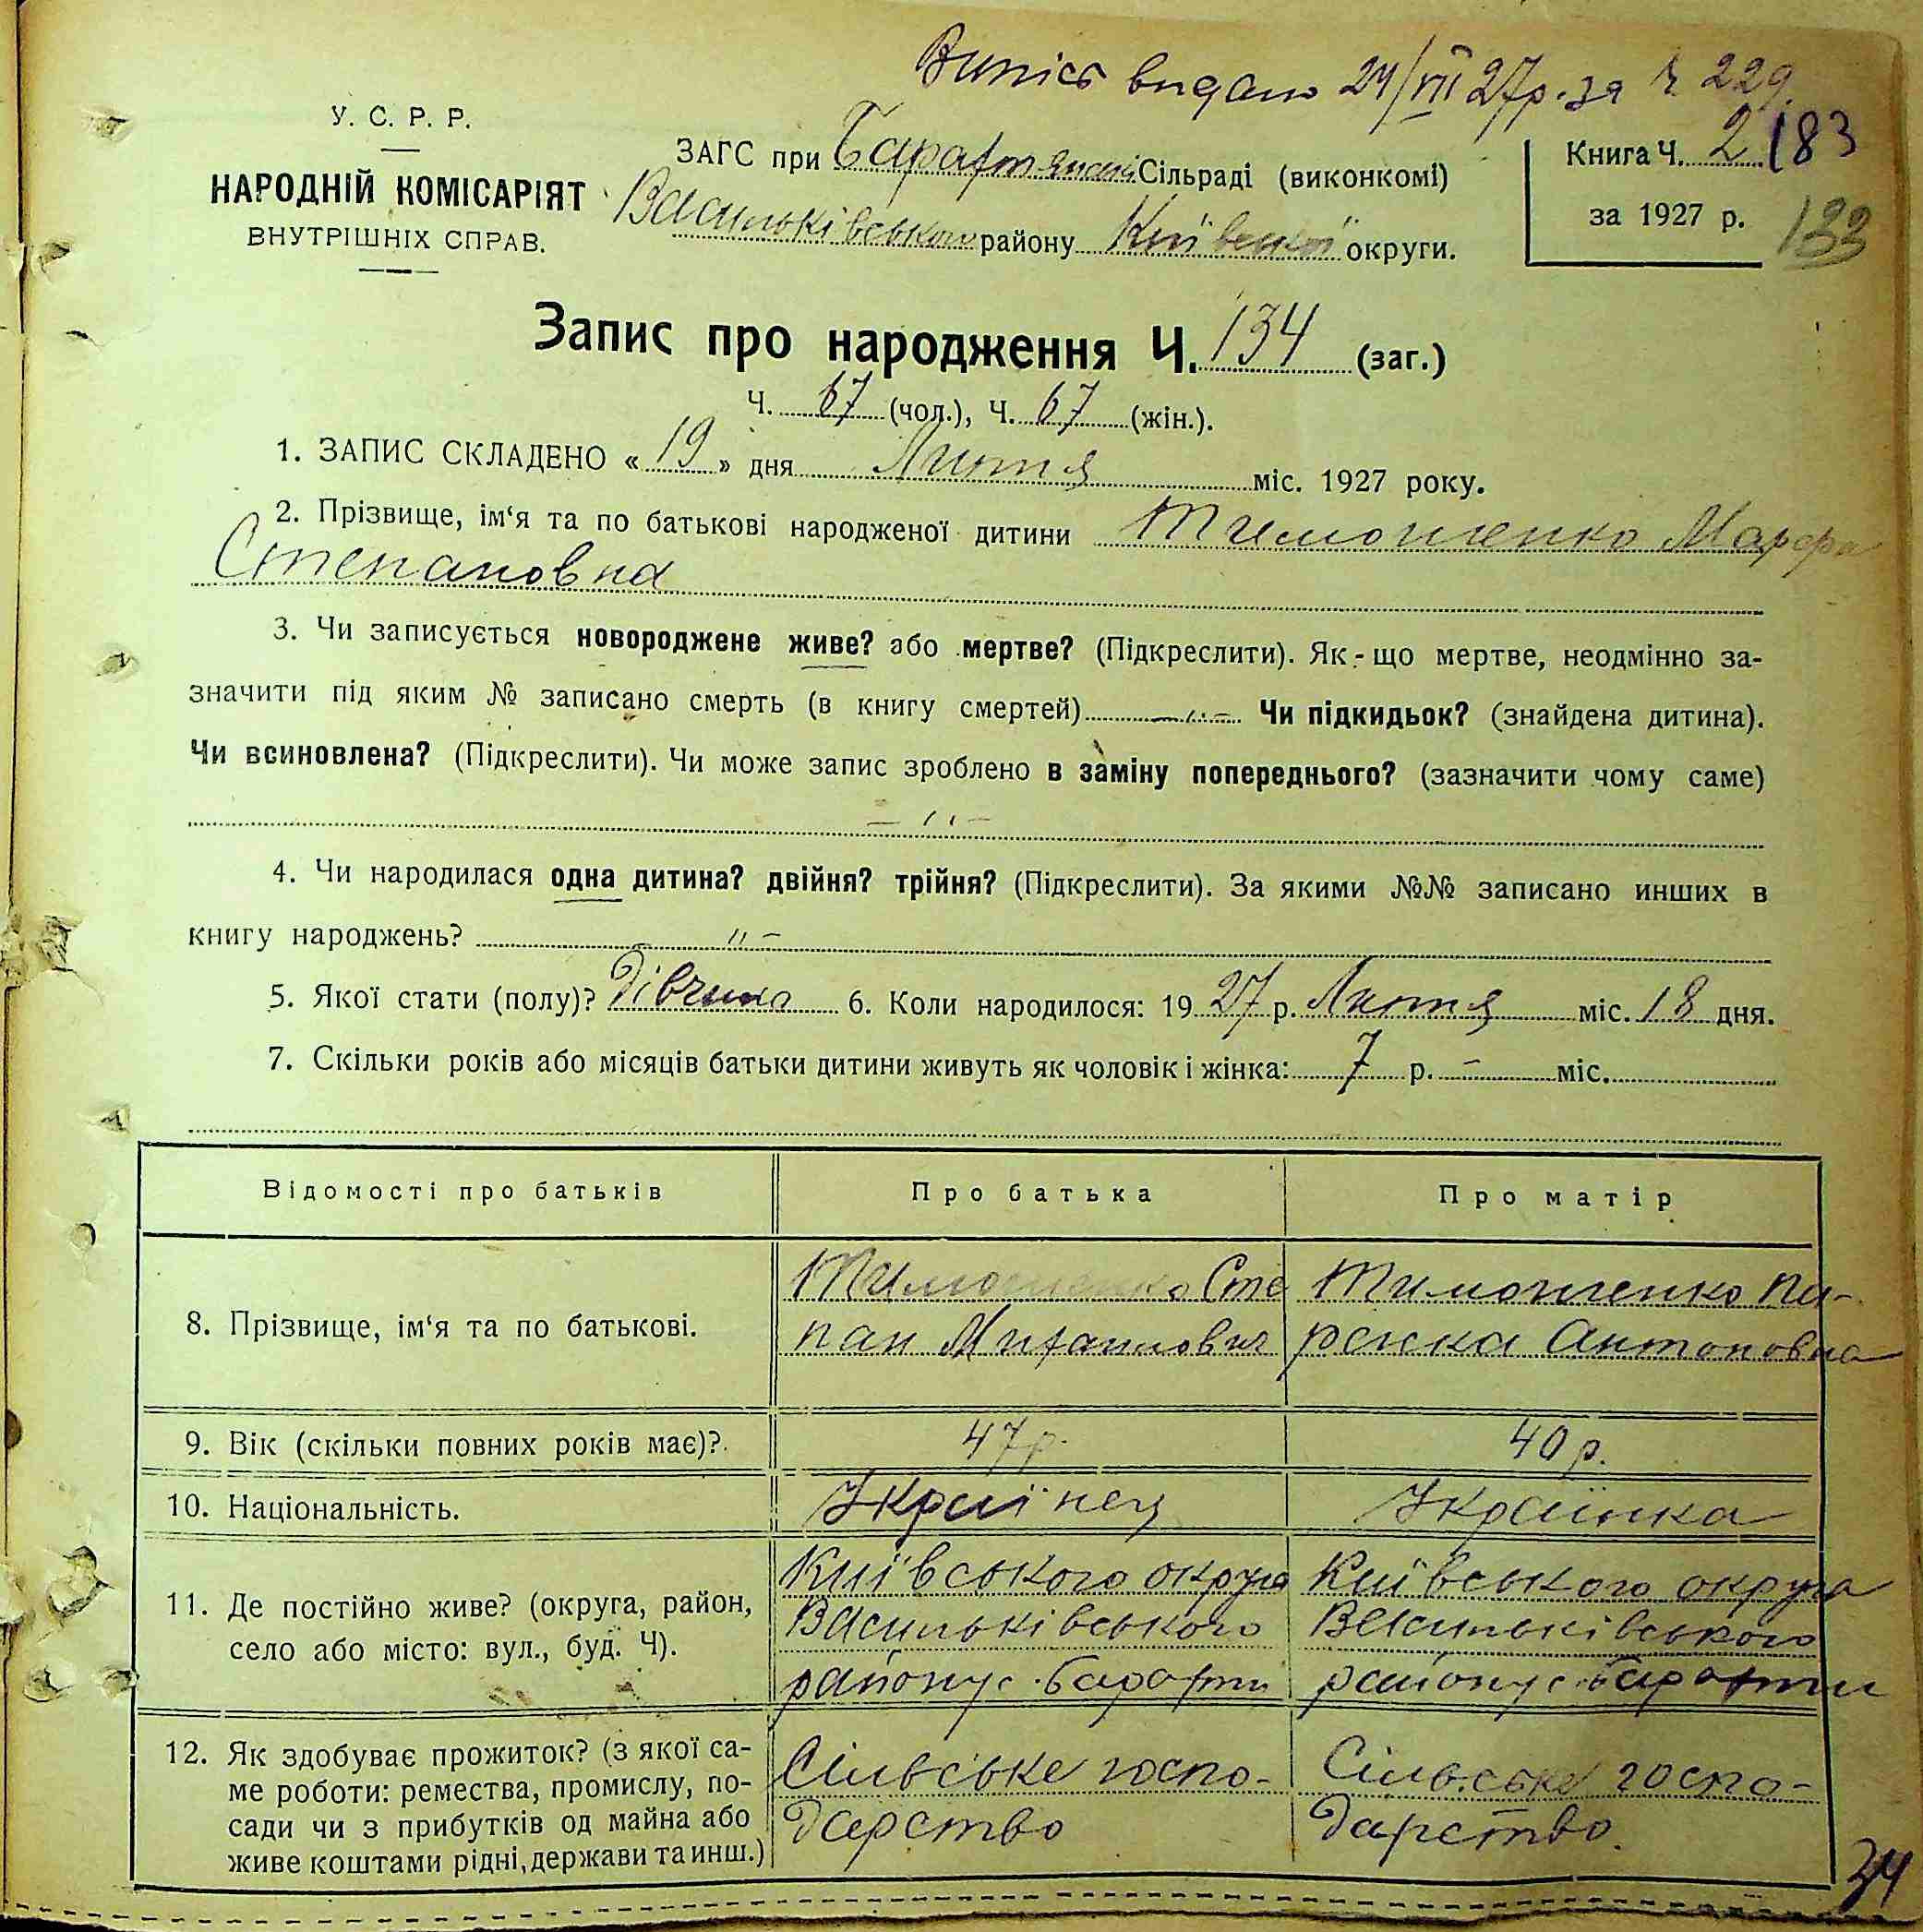 Випісь видано 24/VII 27р. за № 229
У. С. Р. Р.
НАРОДНІЙ КОМІСАРІЯТ
ВНУТРІШНІХ СПРАВ.
ЗАГС при Барахтянській Сільраді (виконкомі)
Васильківського району Київської округи.
Книга Ч. 2 183
за 1927 р. 133
Запис про народження Ч. 134 (заг.)
Ч. 67 (чол.), Ч. 67 (жін.).
1. ЗАПИС СКЛАДЕНО « 19 » дня Липня міс. 1927 року.
2. Прізвище, ім‘я та по батькові народженої дитини Тимошенко Марфа
Степановна
3. Чи записується новороджене живе? або мертве? (Підкреслити). Як-що мертве, неодмінно за-
значити під яким № записано смерть (в книгу смертей) —„— Чи підкидьок? (знайдена дитина).
Чи всиновлена? (Підкреслити). Чи може запис зроблено в заміну попереднього? (зазначити чому саме)
—„—
4. Чи народилася одна дитина? двійня? трійня? (Підкреслити). За якими №№ записано инших в
книгу народжень? —„—
5. Якої стати (полу)? Дівчина 6. Коли народилося: 19 27 р. Липня міс. 18 дня.
7. Скільки років або місяців батьки дитини живуть як чоловік і жінка: 7 р. – міс.
Відомості про батьків Про батька Про матір
8. Прізвище, ім‘я та по батькові.
Тимошенко Сте
пан Михайлович
Тимошенко Па-
раска Антоновна
9. Вік (скільки повних років має)? 47 р. 40 р.
10. Національність. Українец Українка
11. Де постійно живе? (округа, район,
село або місто: вул., буд. Ч).
Київського округа
Васильківського
району с. Барахти
Київського округа
Васильківського
району с. Барахти
12. Як здобуває прожиток? (з якої са-
ме роботи: ремества, промислу, по-
сади чи з прибутків од майна або
живе коштами рідні, держави та инш.)
Сільське госпо-
дарство
Сільське госпо-
дарство
34